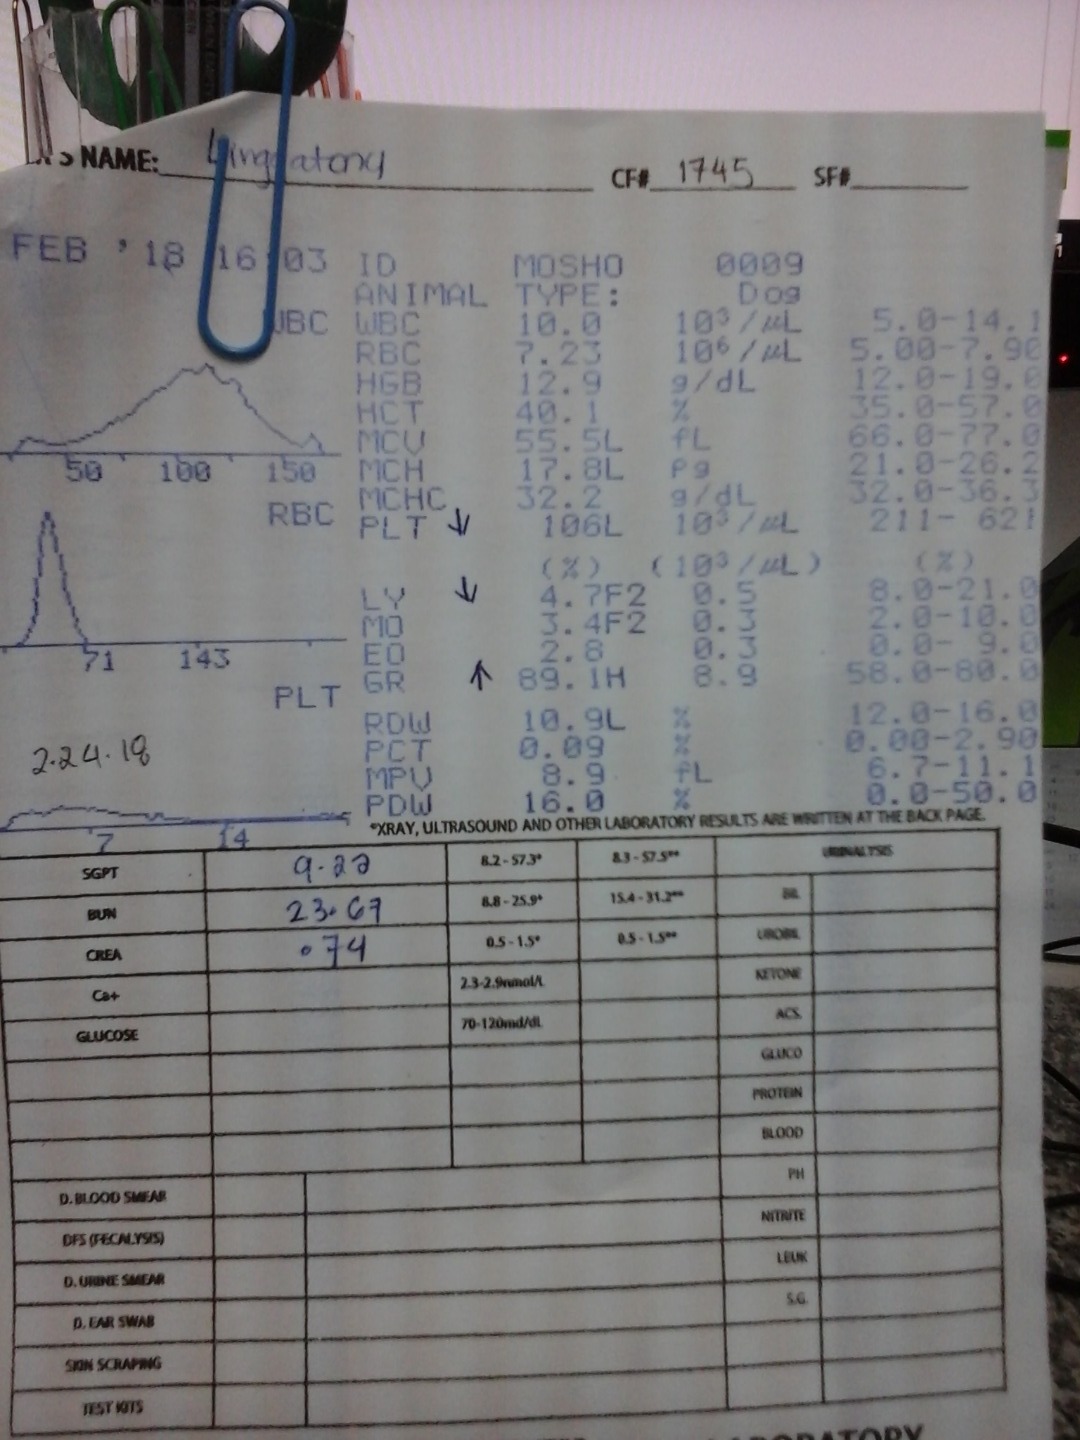 NAME: CF# 1745 SF#
FEB '18 16 03 ID MOSHO 0009
ANIMAL TYPE: Dog
WBC WBC 10.0 10³/µL 5.0-14.1
RBC 7.23 10⁶/µL 5.00-7.90
HGB 12.9 g/dL 12.0-19.0
HCT 40.1 % 35.0-57.0
MCV 55.5L fL 66.0-77.0
50 100 150 MCH 17.8L pg 21.0-26.2
MCHC 32.2 g/dL 32.0-36.3
RBC PLT ↓ 106L 10³/µL 211- 621
(%) (10³/µL) (%)
LY ↓ 4.7F2 0.5 8.0-21.0
MO 3.4F2 0.3 2.0-10.0
71 143 EO 2.8 0.3 0.0- 9.0
PLT GR ↑ 89.1H 8.9 58.0-80.0
RDW 10.9L % 12.0-16.0
2.24.18 PCT 0.09 % 0.00-2.90
MPV 8.9 fL 6.7-11.1
PDW 16.0 % 0.0-50.0
7 14
*XRAY, ULTRASOUND AND OTHER LABORATORY RESULTS ARE WRITTEN AT THE BACK PAGE.
SGPT 9.22 8.2 - 57.3* 8.3 - 57.5** URINALYSIS
BUN 23.67 8.8 - 25.9* 15.4 - 31.2** BIL
CREA .74 0.5 - 1.5* 0.5 - 1.5** UROBIL
Ca+ 2.3-2.9nmol/L KETONE
GLUCOSE 70-120md/dL ACS.
GLUCO
PROTEIN
BLOOD
D. BLOOD SMEAR PH
DFS (FECALYSIS) NITRITE
D. URINE SMEAR LEUK
D. EAR SWAB S.G.
SKIN SCRAPING
TEST KITS
LABORATORY